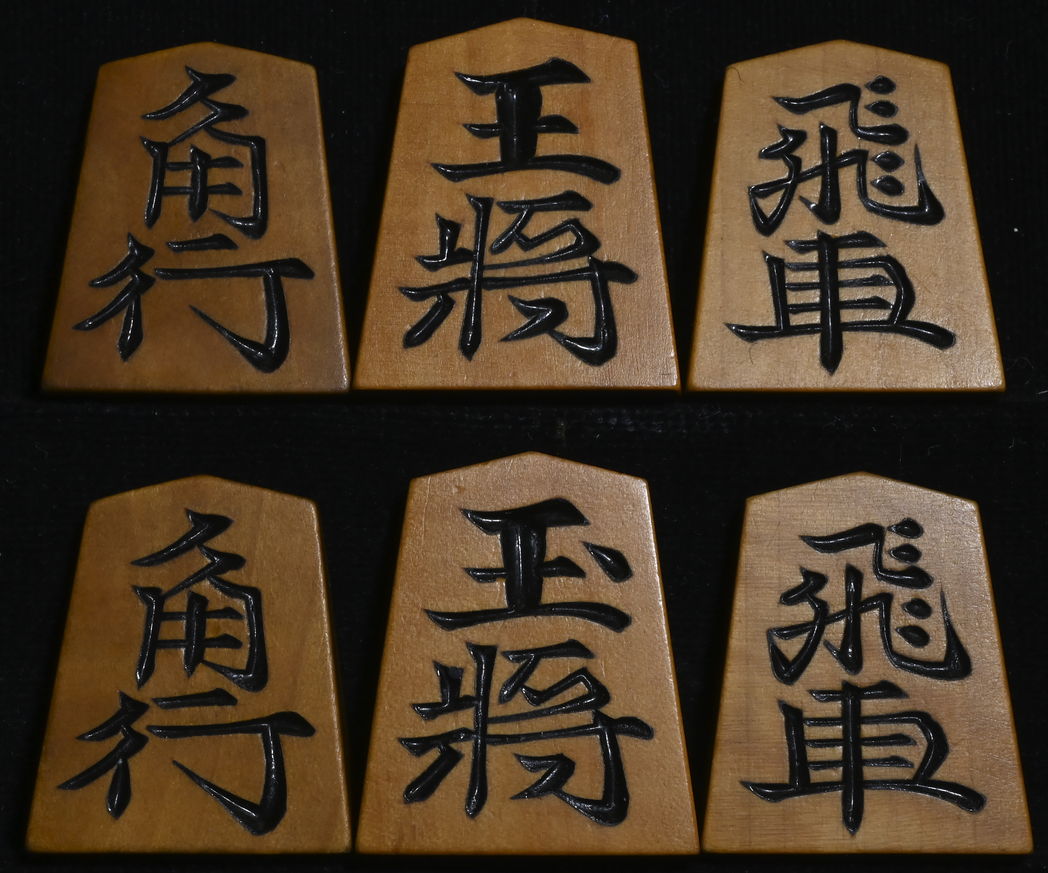 角行
王將
飛車
角行
玉將
飛車